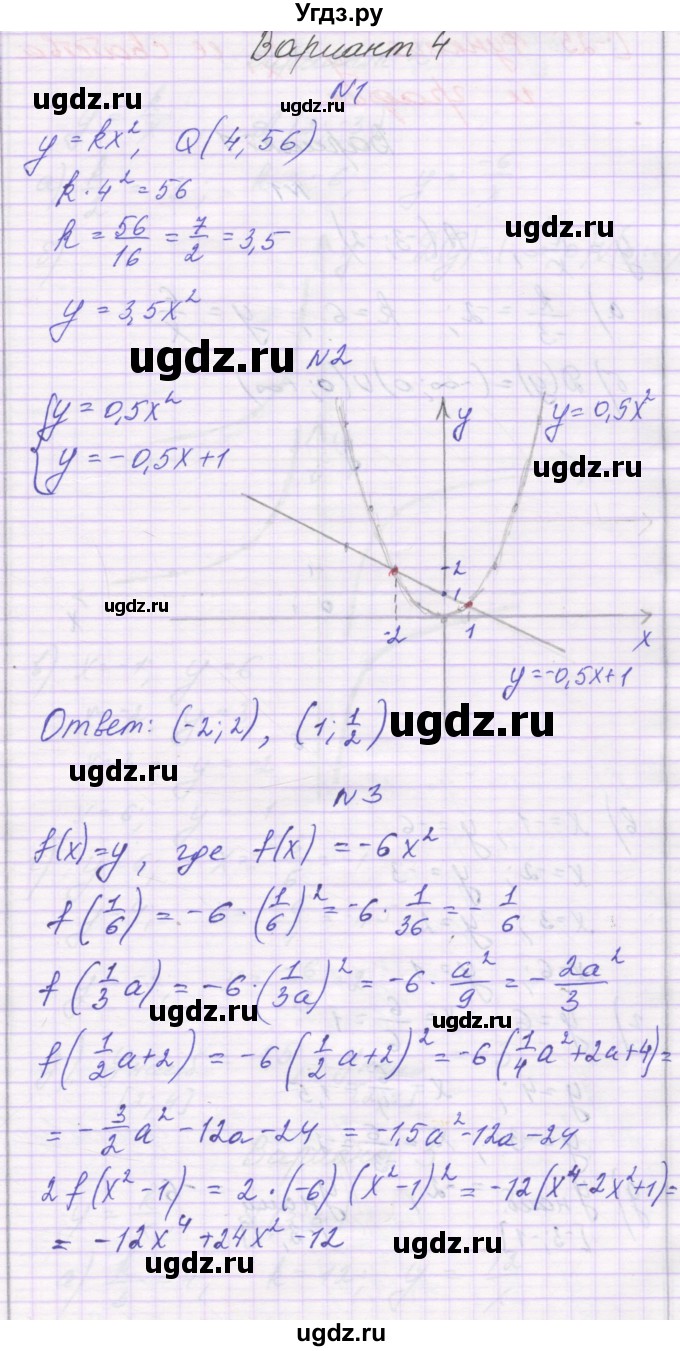 Угдз.ру
Вариант 4
ugdz.ru ugdz.ru
N1
y = kx², Q(4, 56)
k · 4² = 56
ugdz.ru
k = 56/16 = 7/2 = 3,5
y = 3,5x²
ugdz.ru
N2
{ y = 0,5x²
y = -0,5x+1
y
y = 0,5x²
ugdz.ru
2
1
ugdz.ru
-2 1 x
y = -0,5x+1
Ответ: (-2; 2), (1; 1/2)
ugdz.ru
ugdz.ru
N3
f(x) = y, где f(x) = -6x²
f(1/6) = -6 · (1/6)² = -6 · 1/36 = - 1/6
f(1/3 a) = -6 · (1/3a)² = -6 · a²/9 = - 2a²/3
ugdz.ru ugdz.ru
f(1/2 a+2) = -6 (1/2 a+2)² = -6 (1/4 a² + 2a + 4) =
= - 3/2 a² - 12a - 24 = -1,5a² - 12a - 24
2f(x² - 1) = 2 · (-6) (x² - 1)² = -12(x⁴ - 2x² + 1) =
= -12x⁴ + 24x² - 12
ugdz.ru ugdz.ru
ugdz.ru